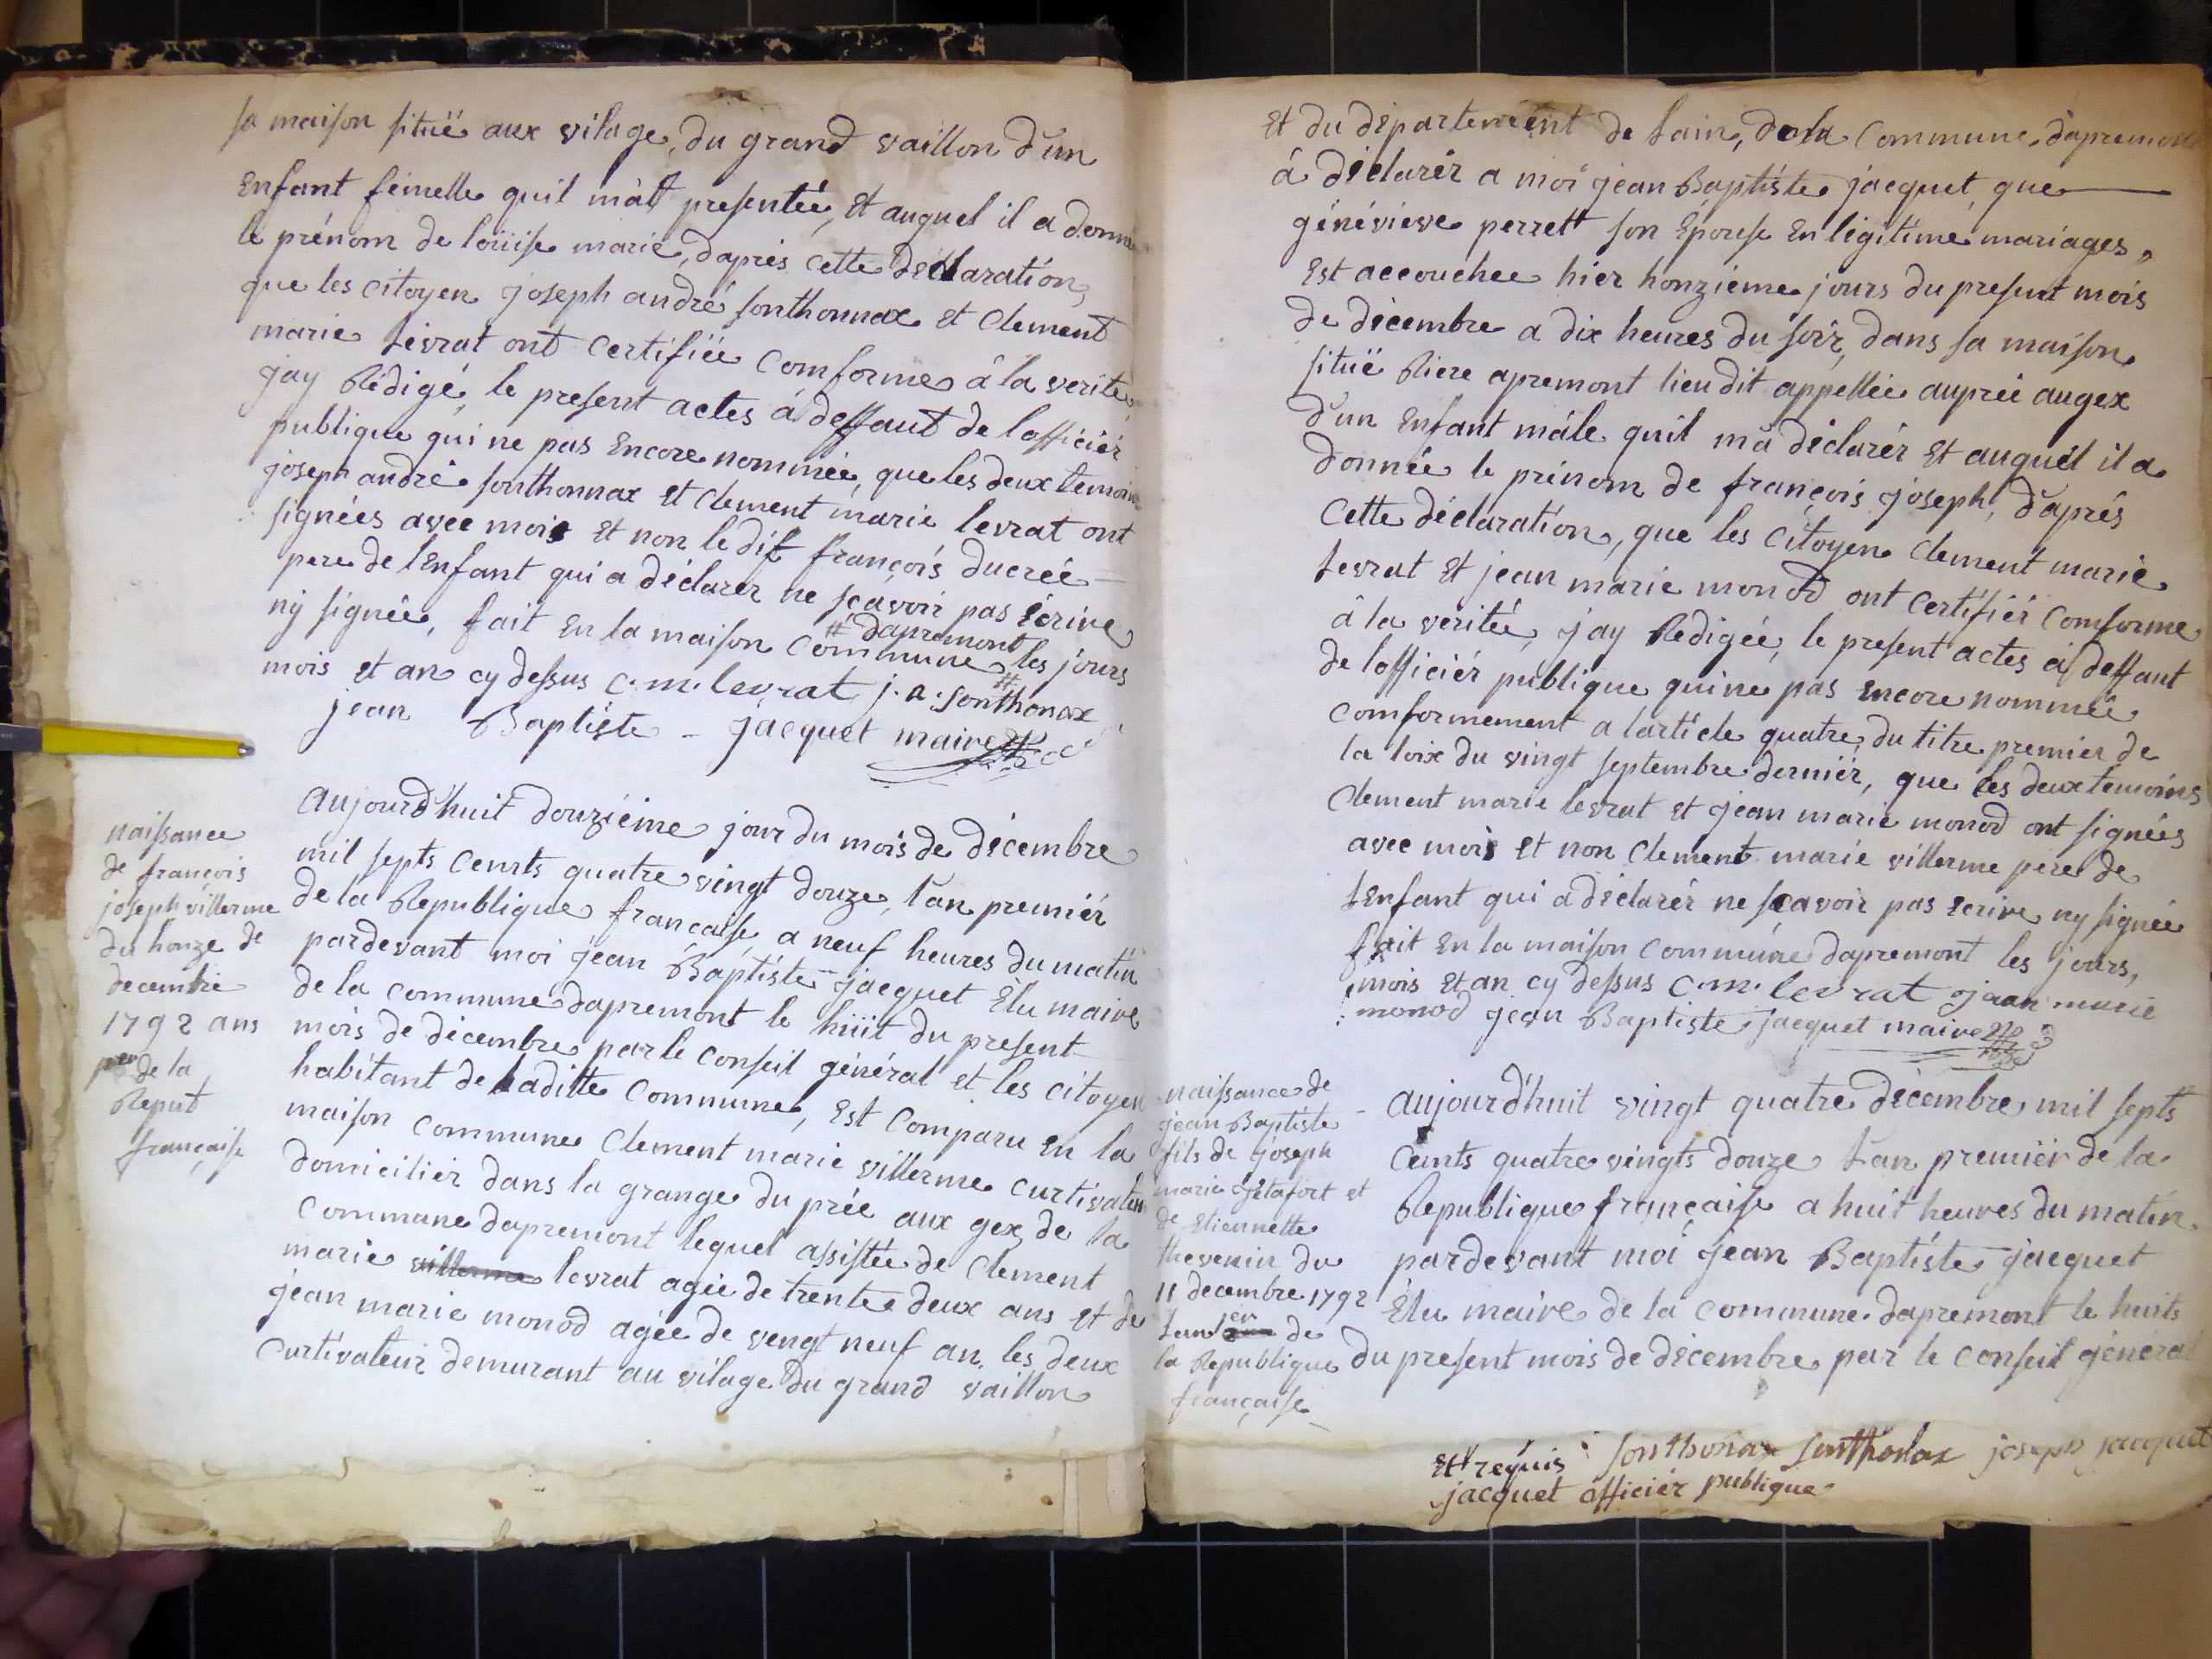 sa maison situë aux vilage du grand vaillon d'un
Enfant fémelle quil màt presentée, Et auquel il a donné
le prénom de loüise marie, daprés cette déclaration,
que les citoyen joseph andré sonthonnax et Clement
marie Levrat ont certifiée Comforme â la verité
jay Rédigé, le present actes á deffaut de lofficiér
publique qui ne pas Encore nommée, que les deux temoin
joseph andré sonthonnax et Clement marie levrat ont
signées avec mois Et non le dit françois ducrée
pere de lEnfant qui a déclarer ne sçavoir pas Ecrire
ny signée, fait En la maison Commune les jours
# dapremont #
mois et an cy dessus c. m. levrat j. a. sonthonax
jean Baptiste - jacquet maire
naissance
de françois
joseph villerme
du honze de
decembre
1792 ans
per de la
Repub
française
aujourd'huit douziéme jour du mois de décembre
mil septs cents quatre vingt douze, lan premiér
de la Republique francaise a neuf heures du matin
pardevant moi jean Baptiste jacquet Elu maire
de la commune dapremont le hüit du present
mois de décembre par le conseil général et les citoyen
habitant de laditte Commune, Est Comparu En la
maison commune Clement marie villerme curtivateur
domiciliér dans la grange du prée aux gex de la
Commune dapremont lequel assistée de Clement
marie villerme levrat agée de trente deux ans et de
jean marie monod agée de vengt neuf an les deux
Curtivateur demurant au vilage du grand vaillon
Et du département de Lain, de la Commune dapremont
á déclarér a moi jean Baptiste jacquet, que
généviéve perrett son Epouse En légitime mariages,
Est accouchee hier honziéme jours du present mois
de décembre a dix heures du soir, dans sa maison
situë Riere apremont lieu dit appellée auprée augex
d'un Enfant mále quil mâ déclarér Et auquél il a
donnée le prénom de françois joseph, d'aprés
Cette déclaration, que les Citoyen Clement marie
Levrat Et jean marie monod ont certifiér Comforme
â la veritée, jay Redigée, le present actes á deffaut
de lofficiér publique qui ne pas encore nommée
comformement a larticle quatre du titre premier de
la loix du vingt septembre derniér, que les deux temoins
Clement marie levrat et jean marie monod ont signées
avec mois Et non Clement marie villerme pere de
LEnfant qui a déclarér ne sçavoir pas Ecrire ny signée
fait En la maison commune dapremont les jours,
mois Et an cy dessus c. m. levrat jean marie
monod jean Baptiste jacquet maire
naissance de
jean Baptiste
fils de joseph
marie jetafort et
de Etiennette
thevenin du
11 decembre 1792
Lan 1er de
la Republique
française
aujourd'huit vingt quatre décembre mil septs
Cents quatre vingts douze Lan premiér de la
Republique française a huit heures du matin
pardevant moi jean Baptiste jacquet
Elu maire de la commune dapremont le huits
du present mois de décembre par le conseil général
Et requis sonthonax sonthonax joseph jacquet
jacquet officiér publique